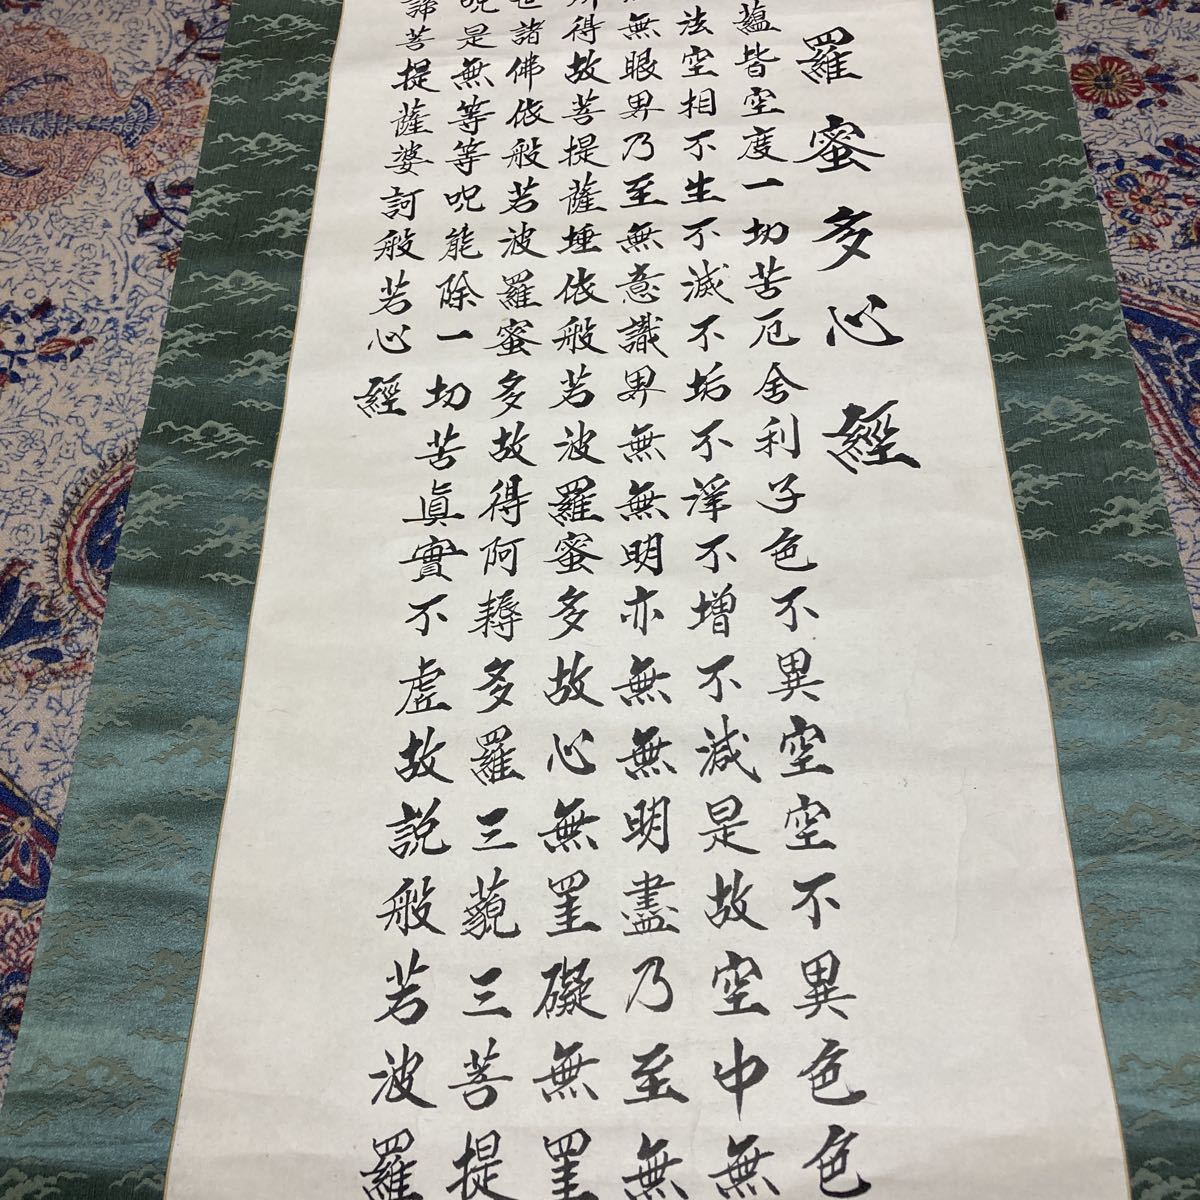 羅蜜多心經
蘊皆空度一切苦厄舍利子色不異空空不異色色
法空相不生不滅不垢不淨不增不減是故空中無
無眼界乃至無意識界無無明亦無無明盡乃至無
所得故菩提薩埵依般若波羅蜜多故心無罣礙無罣
世諸佛依般若波羅蜜多故得阿耨多羅三藐三菩提
呪是無等等呪能除一切苦真實不虛故説般若波羅
諦菩提薩婆訶般若心經